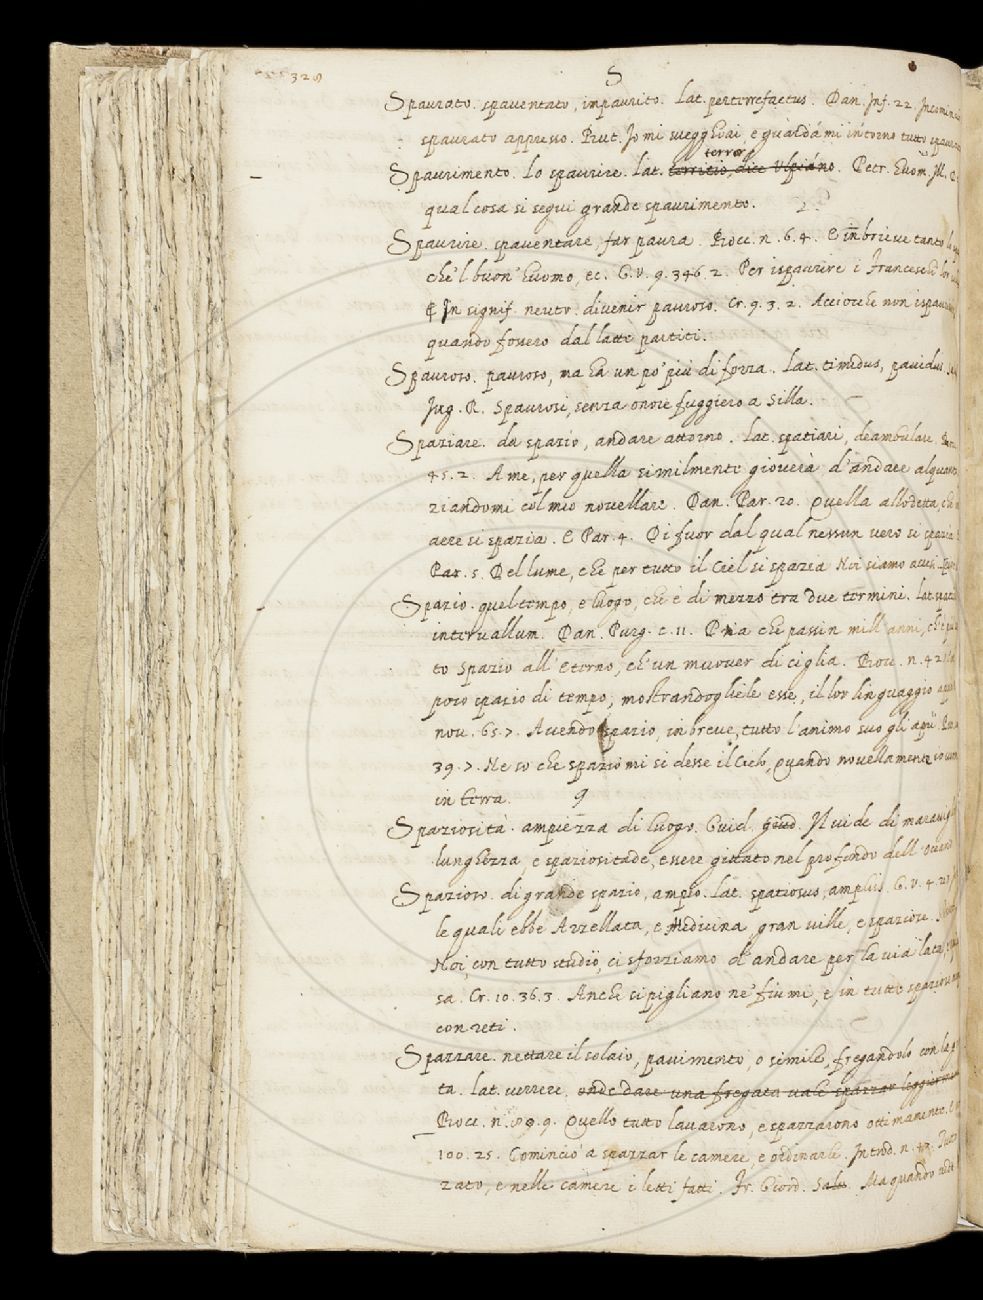 328
S
Spaurato. spaventato, impaurito. Lat. perterrefactus. Dan. Inf. 22. Incominciai
spaurato appresso. But. Io mi svegghiai, e guardámi intorno tutto
terror
Spaurimento. Lo spaurire. Lat. territio, dice Ulpiano. Petr. Huom. Ill.
qual cosa si seguì grande spaurimento.
Spaurire. spaventare, far paura. Bocc. n. 6. 4. E in brieve tanto lo
che'l buon' huomo, ec. G. V. 9. 346 2. Per ispaurire i Franceschi
¶ In signif. neutr. divenir pauroso. Cr. 9. 3. 2. Acciocche non
quando fossero dal latte partiti.
Spauroso. pauroso, ma ha un po' più di forza. Lat. timidus, pavidus
Jug. R. Spaurosi, senza onore fuggiero a Silla.
Spaziare. da spazio, andare attorno. Lat. spatiari, deambulare.
45. 2. A me, per quella similmente gioverà d'andare
ziandomi col mio novellare. Dan. Par. 20. Quella allodetta, che
aere si spazia. E Par. 4. Di fuor dal qual nessun vero si spazia
Par. 5. Del lume, che per tutto il Ciel si spazia Noi siamo accesi
Spazio. quel tempo, e luogo, che è di mezzo tra due termini. Lat.
intervallum. Dan. Purg. c. 11. Pria che passin mill' anni, ch'è
to Spazio all' eterno, ch' un muover di ciglia. Bocc. n. 42
poco spazio di tempo, mostrandogliele esse, il lor linguaggio
nov. 65. 7. Avendo spazio, in breve, tutto l'animo suo gli aprì.
39. 7. Ne so che spazio mi si desse il Cielo, Quando novellamente
in terra. 9
Spaziosità. ampiezza di luogo. Guid. Giud. Il vide di
lunghezza e spaziositade, essere gittato nel profondo dell
Spazioso. di grande spazio, ampio. Lat. spatiosus, amplus. G. V. 4.
le quali ebbe Azzellata, e Medicina, gran ville, e spaziose.
Noi, con tutto studio, ci sforziamo d' andare per la via lata,
sa. Cr. 10. 36. 3. Anche si pigliano ne' fiumi, e in tutte
con reti.
Spazzare. nettare il solaio, pavimento, o simile, fregandolo con la
ta. Lat. verrere. onde dare una fregata vale spazzar
Bocc. n. 89. 9. Quello tutto lavarono, e spazzarono ottimamente.
100. 25. Cominciò a spazzar le camere, e ordinarle. Introd. n.
zato, e nelle camere i letti fatti. Fr. Giord. Salv. Ma quando